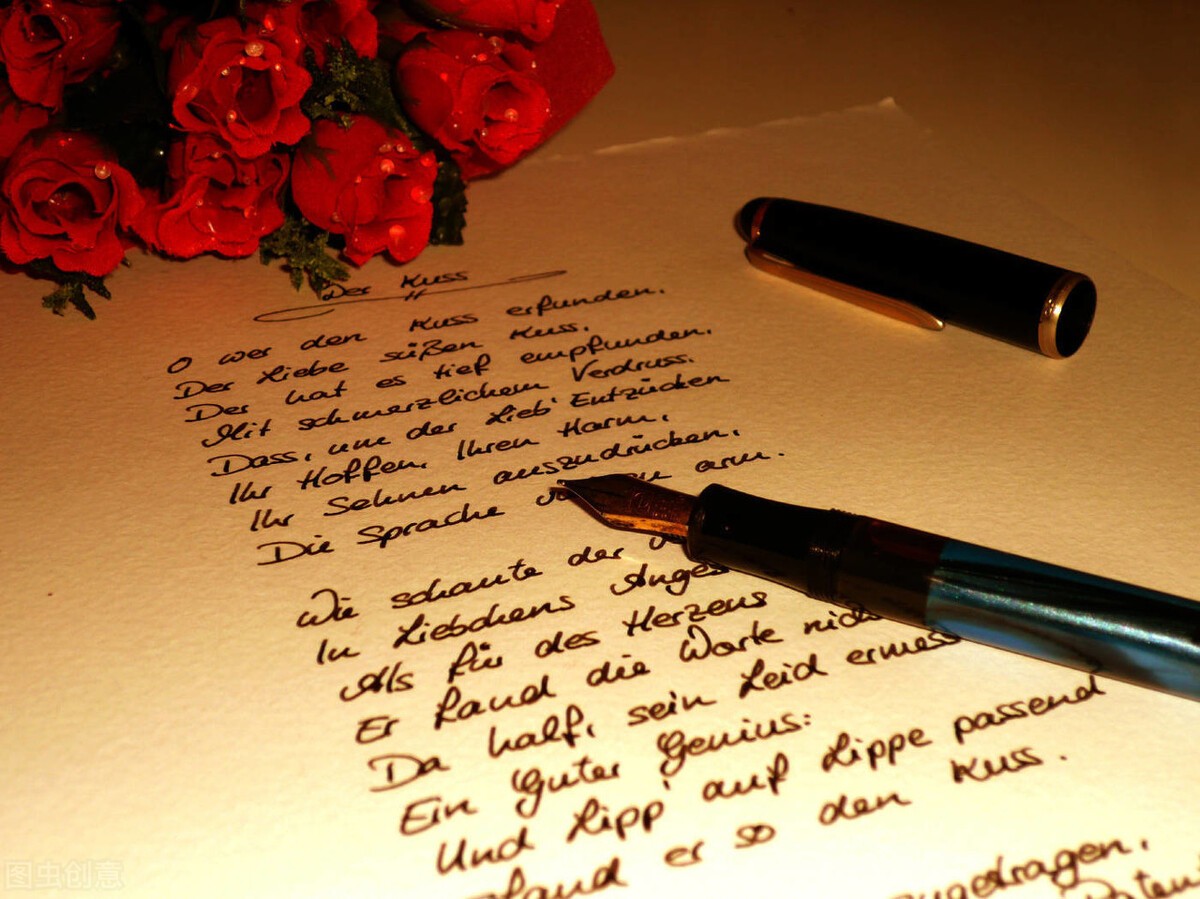 Der Kuss
O wer den Kuss erfunden,
Der Liebe süßen Kuss,
Der hat es tief empfunden,
Mit schmerzlichem Verdruss:
Dass, um der Lieb' Entzücken
Ihr Hoffen, Ihren Harm,
Ihr Sehnen auszudrücken,
Die Sprache arm.
Wie schaute der
In Liebchens
Als für des Herzens
Er fand die Worte
Da half, sein Leid
Ein Guter Genius:
Und Lipp' auf Lippe passend
er so den Kuss.
图虫创意